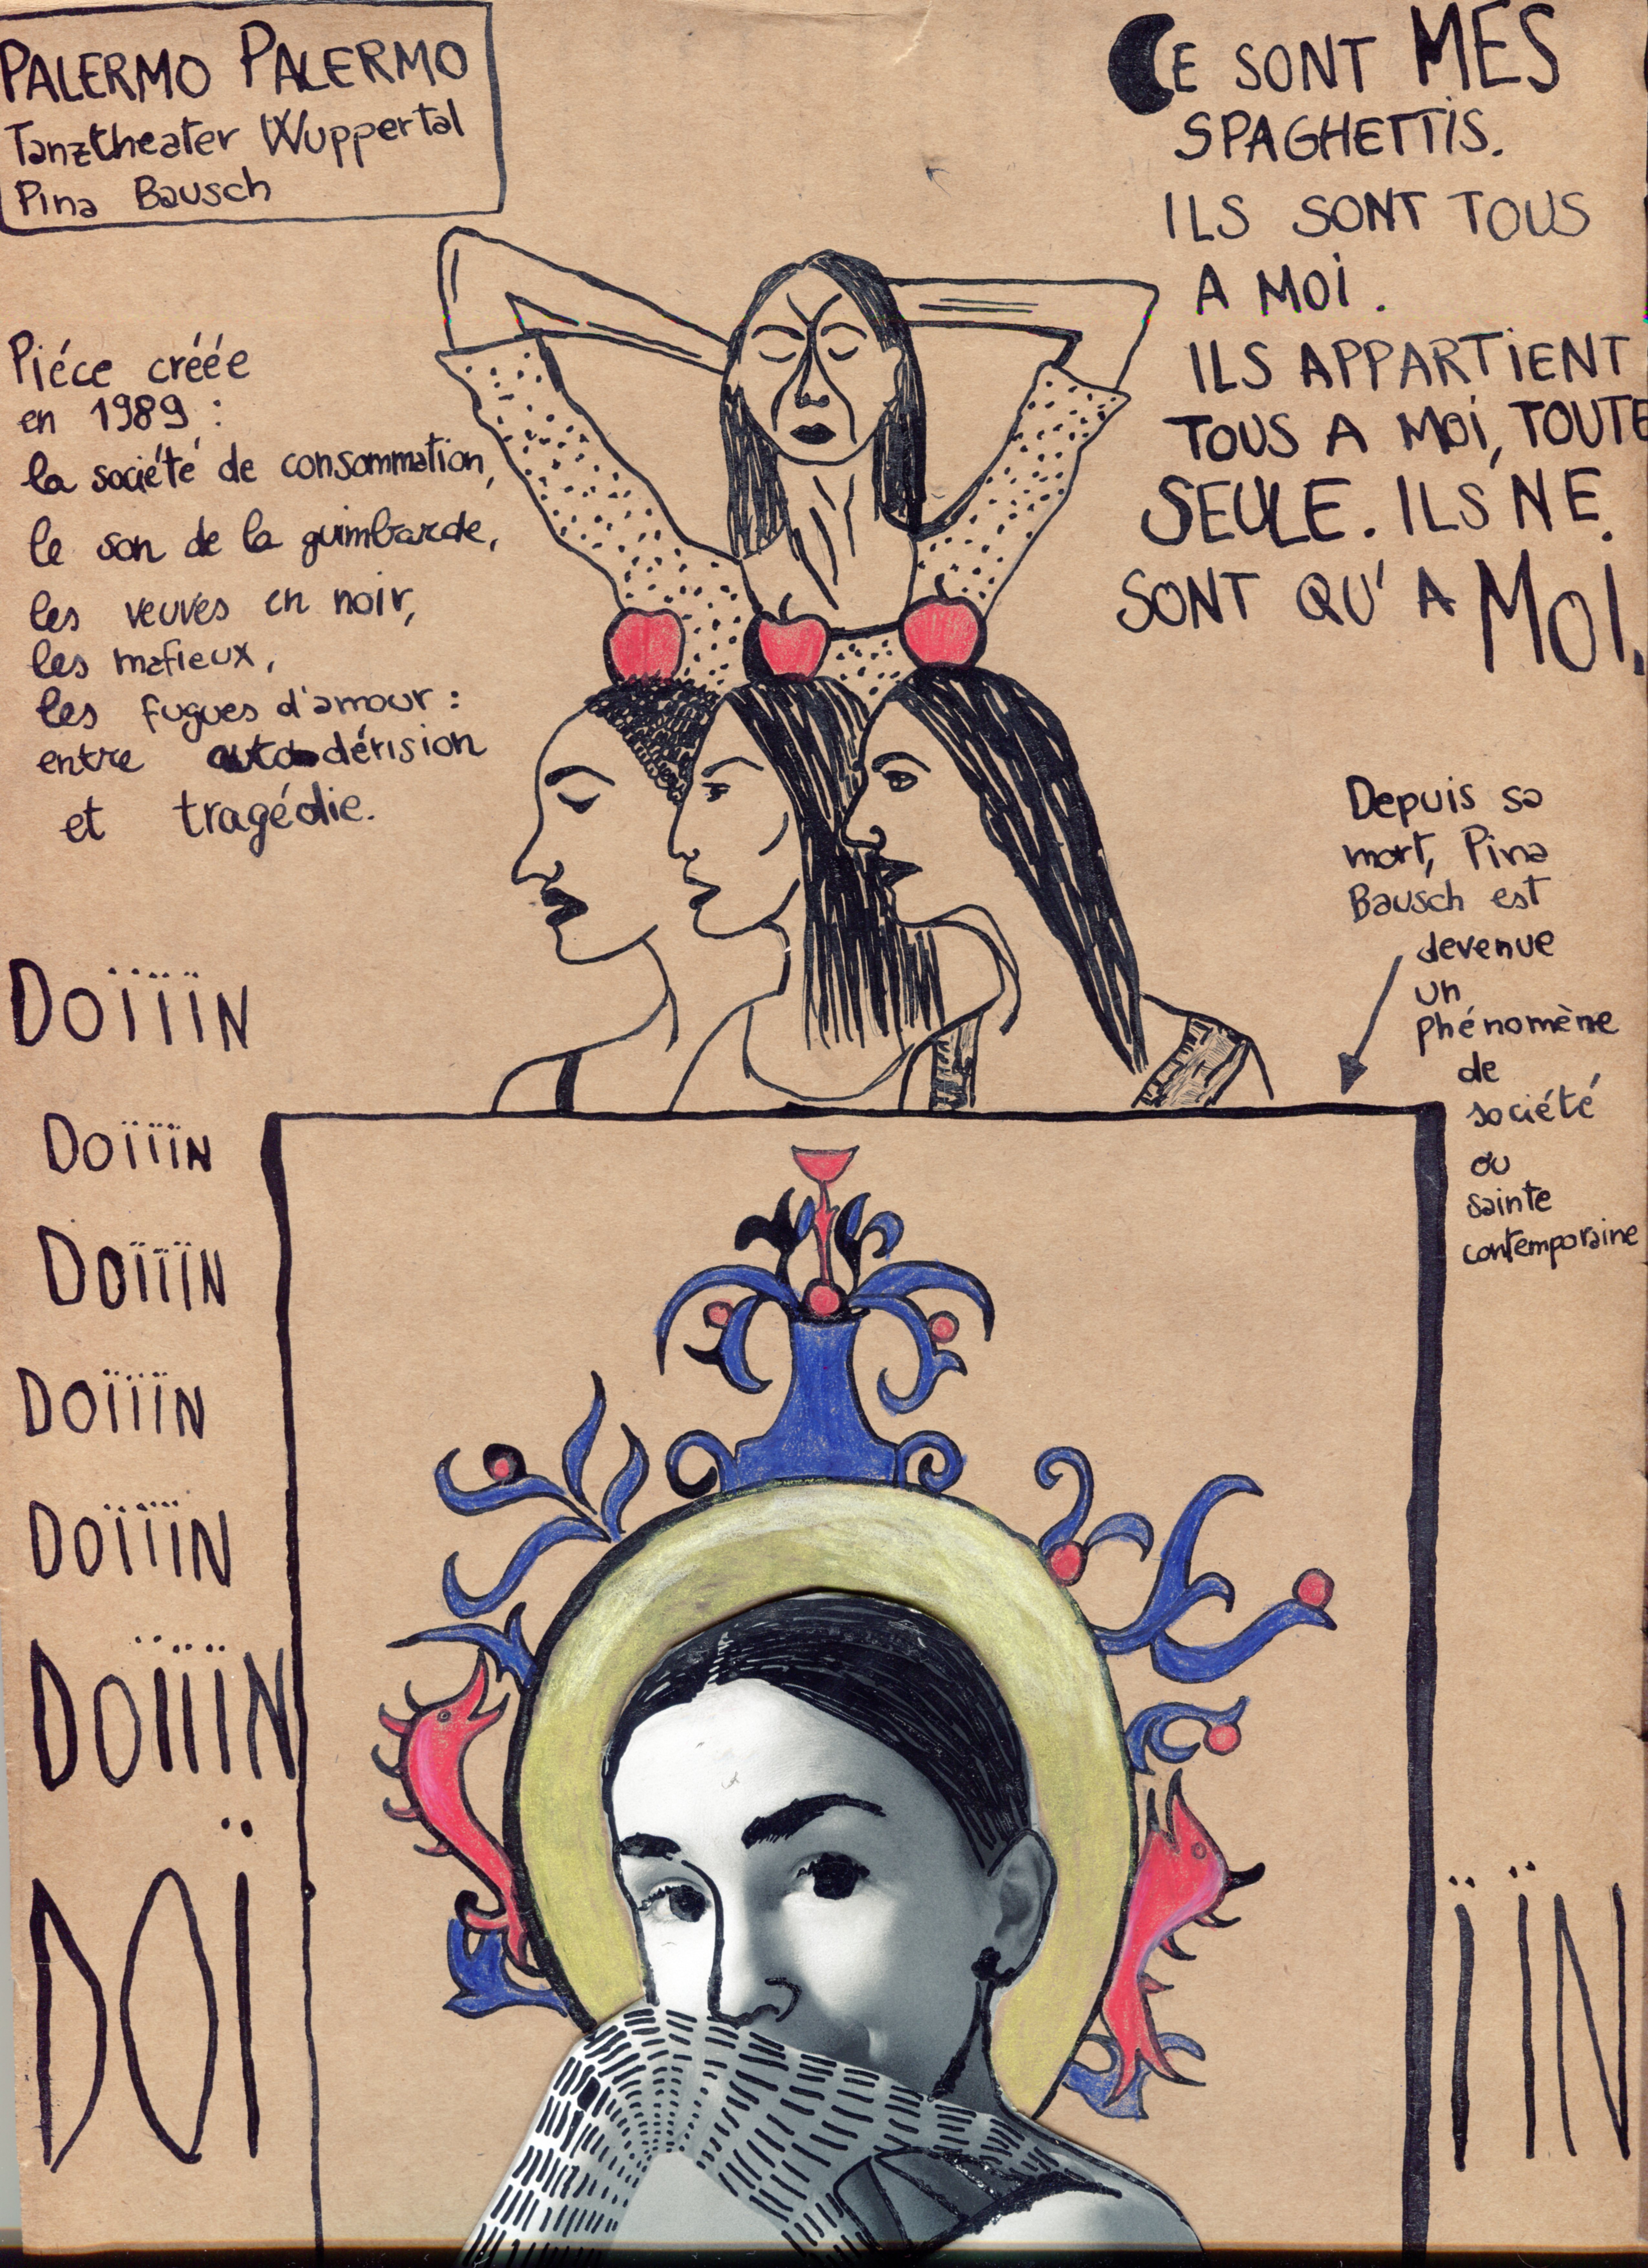 PALERMO PALERMO
Tanztheater Wuppertal
Pina Bausch
CE SONT MES
SPAGHETTIS.
ILS SONT TOUS
A MOI.
ILS APPARTIENT
TOUS A MOI, TOUTE
SEULE. ILS NE
SONT QU'A MOI.
Piéce créée
en 1989 :
la société de consommation,
le son de la guimbarde,
les veuves en noir,
les mafieux,
les fugues d'amour :
entre autodérision
et tragédie.
Depuis sa
mort, Pina
Bausch est
devenue
un
phénomène
de
société
ou
sainte
contemporaine
DOÏÏÏN
DOÏÏÏN
DOÏÏÏN
DOÏÏÏN
DOÏÏÏN
DOÏÏÏN
DOÏ ÏÏN